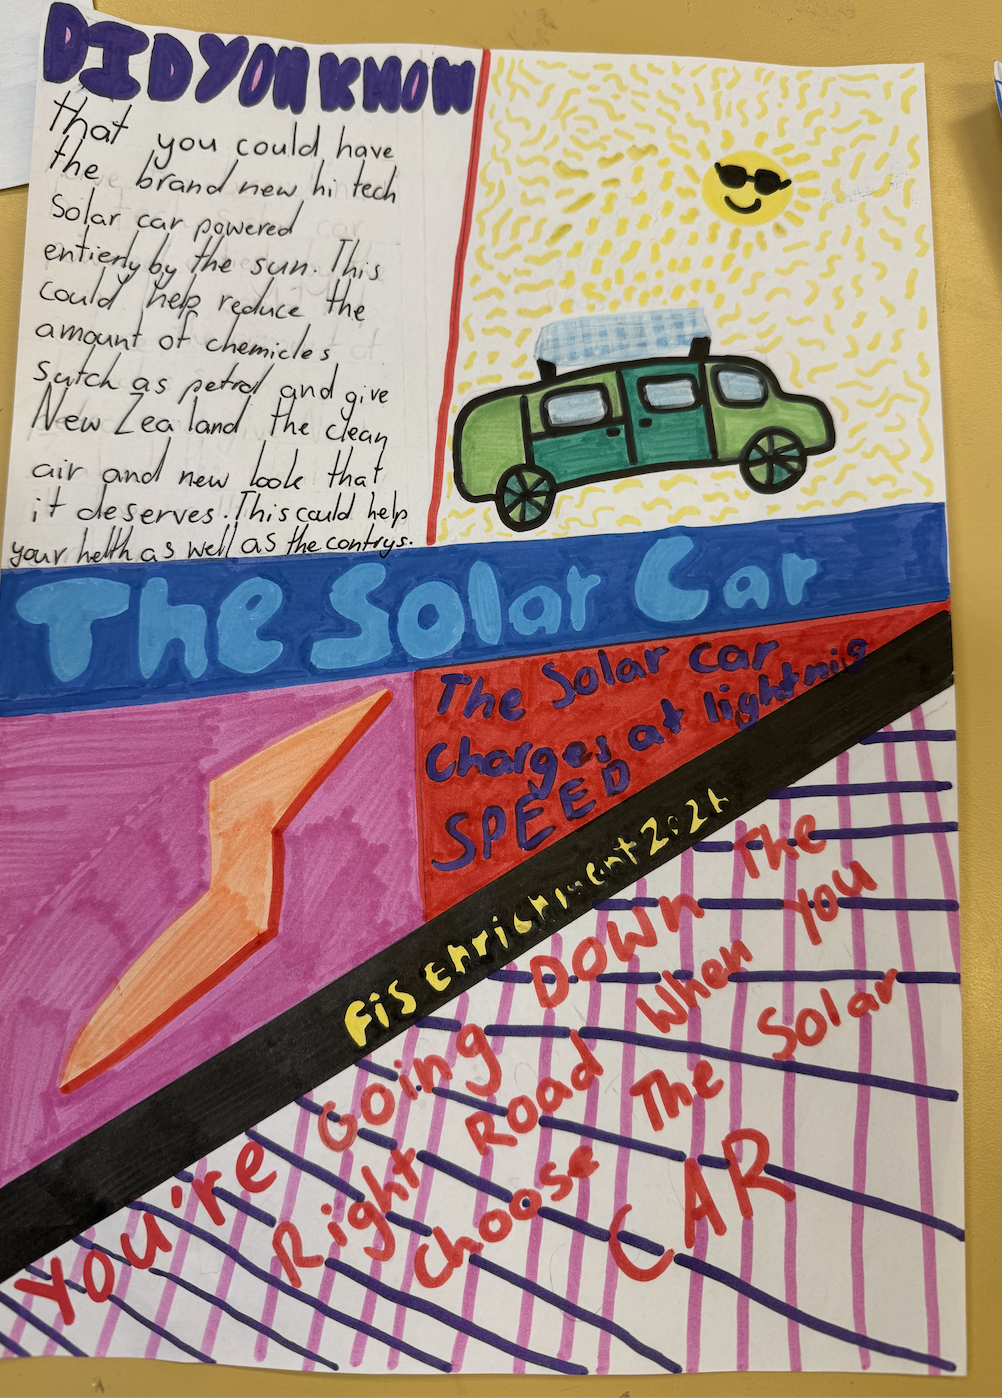 DID YOU KNOW
that you could have
the brand new hi tech
Solar car powered
entierly by the sun. This
could help reduce the
amount of chemicles
sutch as petrol and give
New Zealand the clean
air and new look that
it deserves. This could help
your helth as well as the contrys.
The Solar Car
The Solar car
charges at lightnig
SPEED
Fis Enrichment 2021
You're Going DOWN The
Right Road When you
choose The Solar
CAR